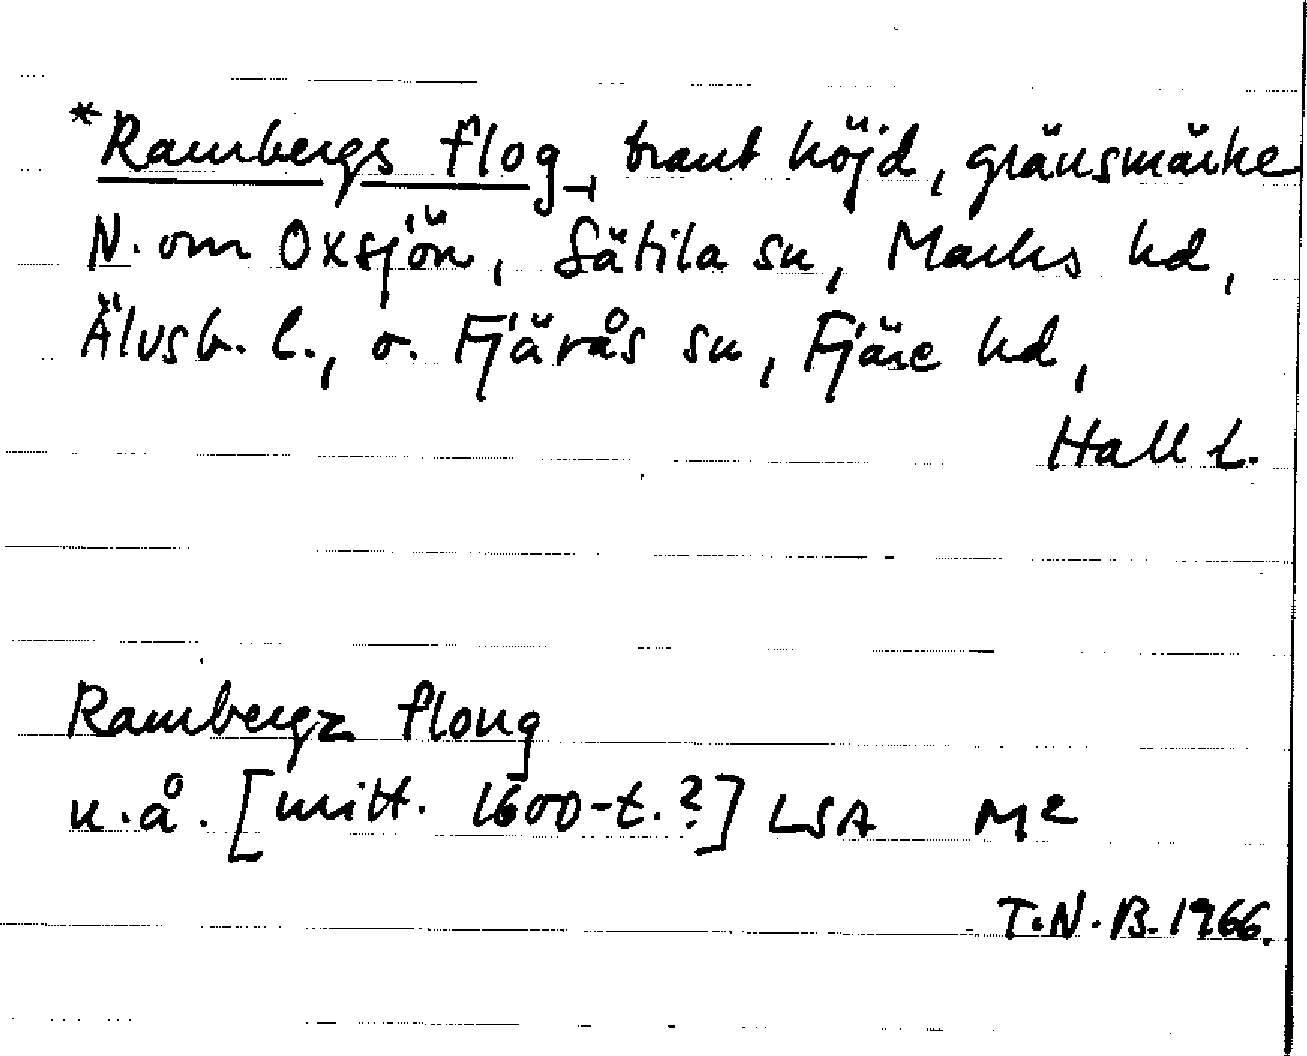 *Rambergs flog, brant höjd, gränsmärke
N. om Oxsjön, Sätila sn, Marks hd,
Älvsb. l., o. Fjärås sn, Fjäre hd,
Hall l.
Rambergz floug
u.å. [mitt. 1600-t.?] LSA M2
T.N.B. 1966.